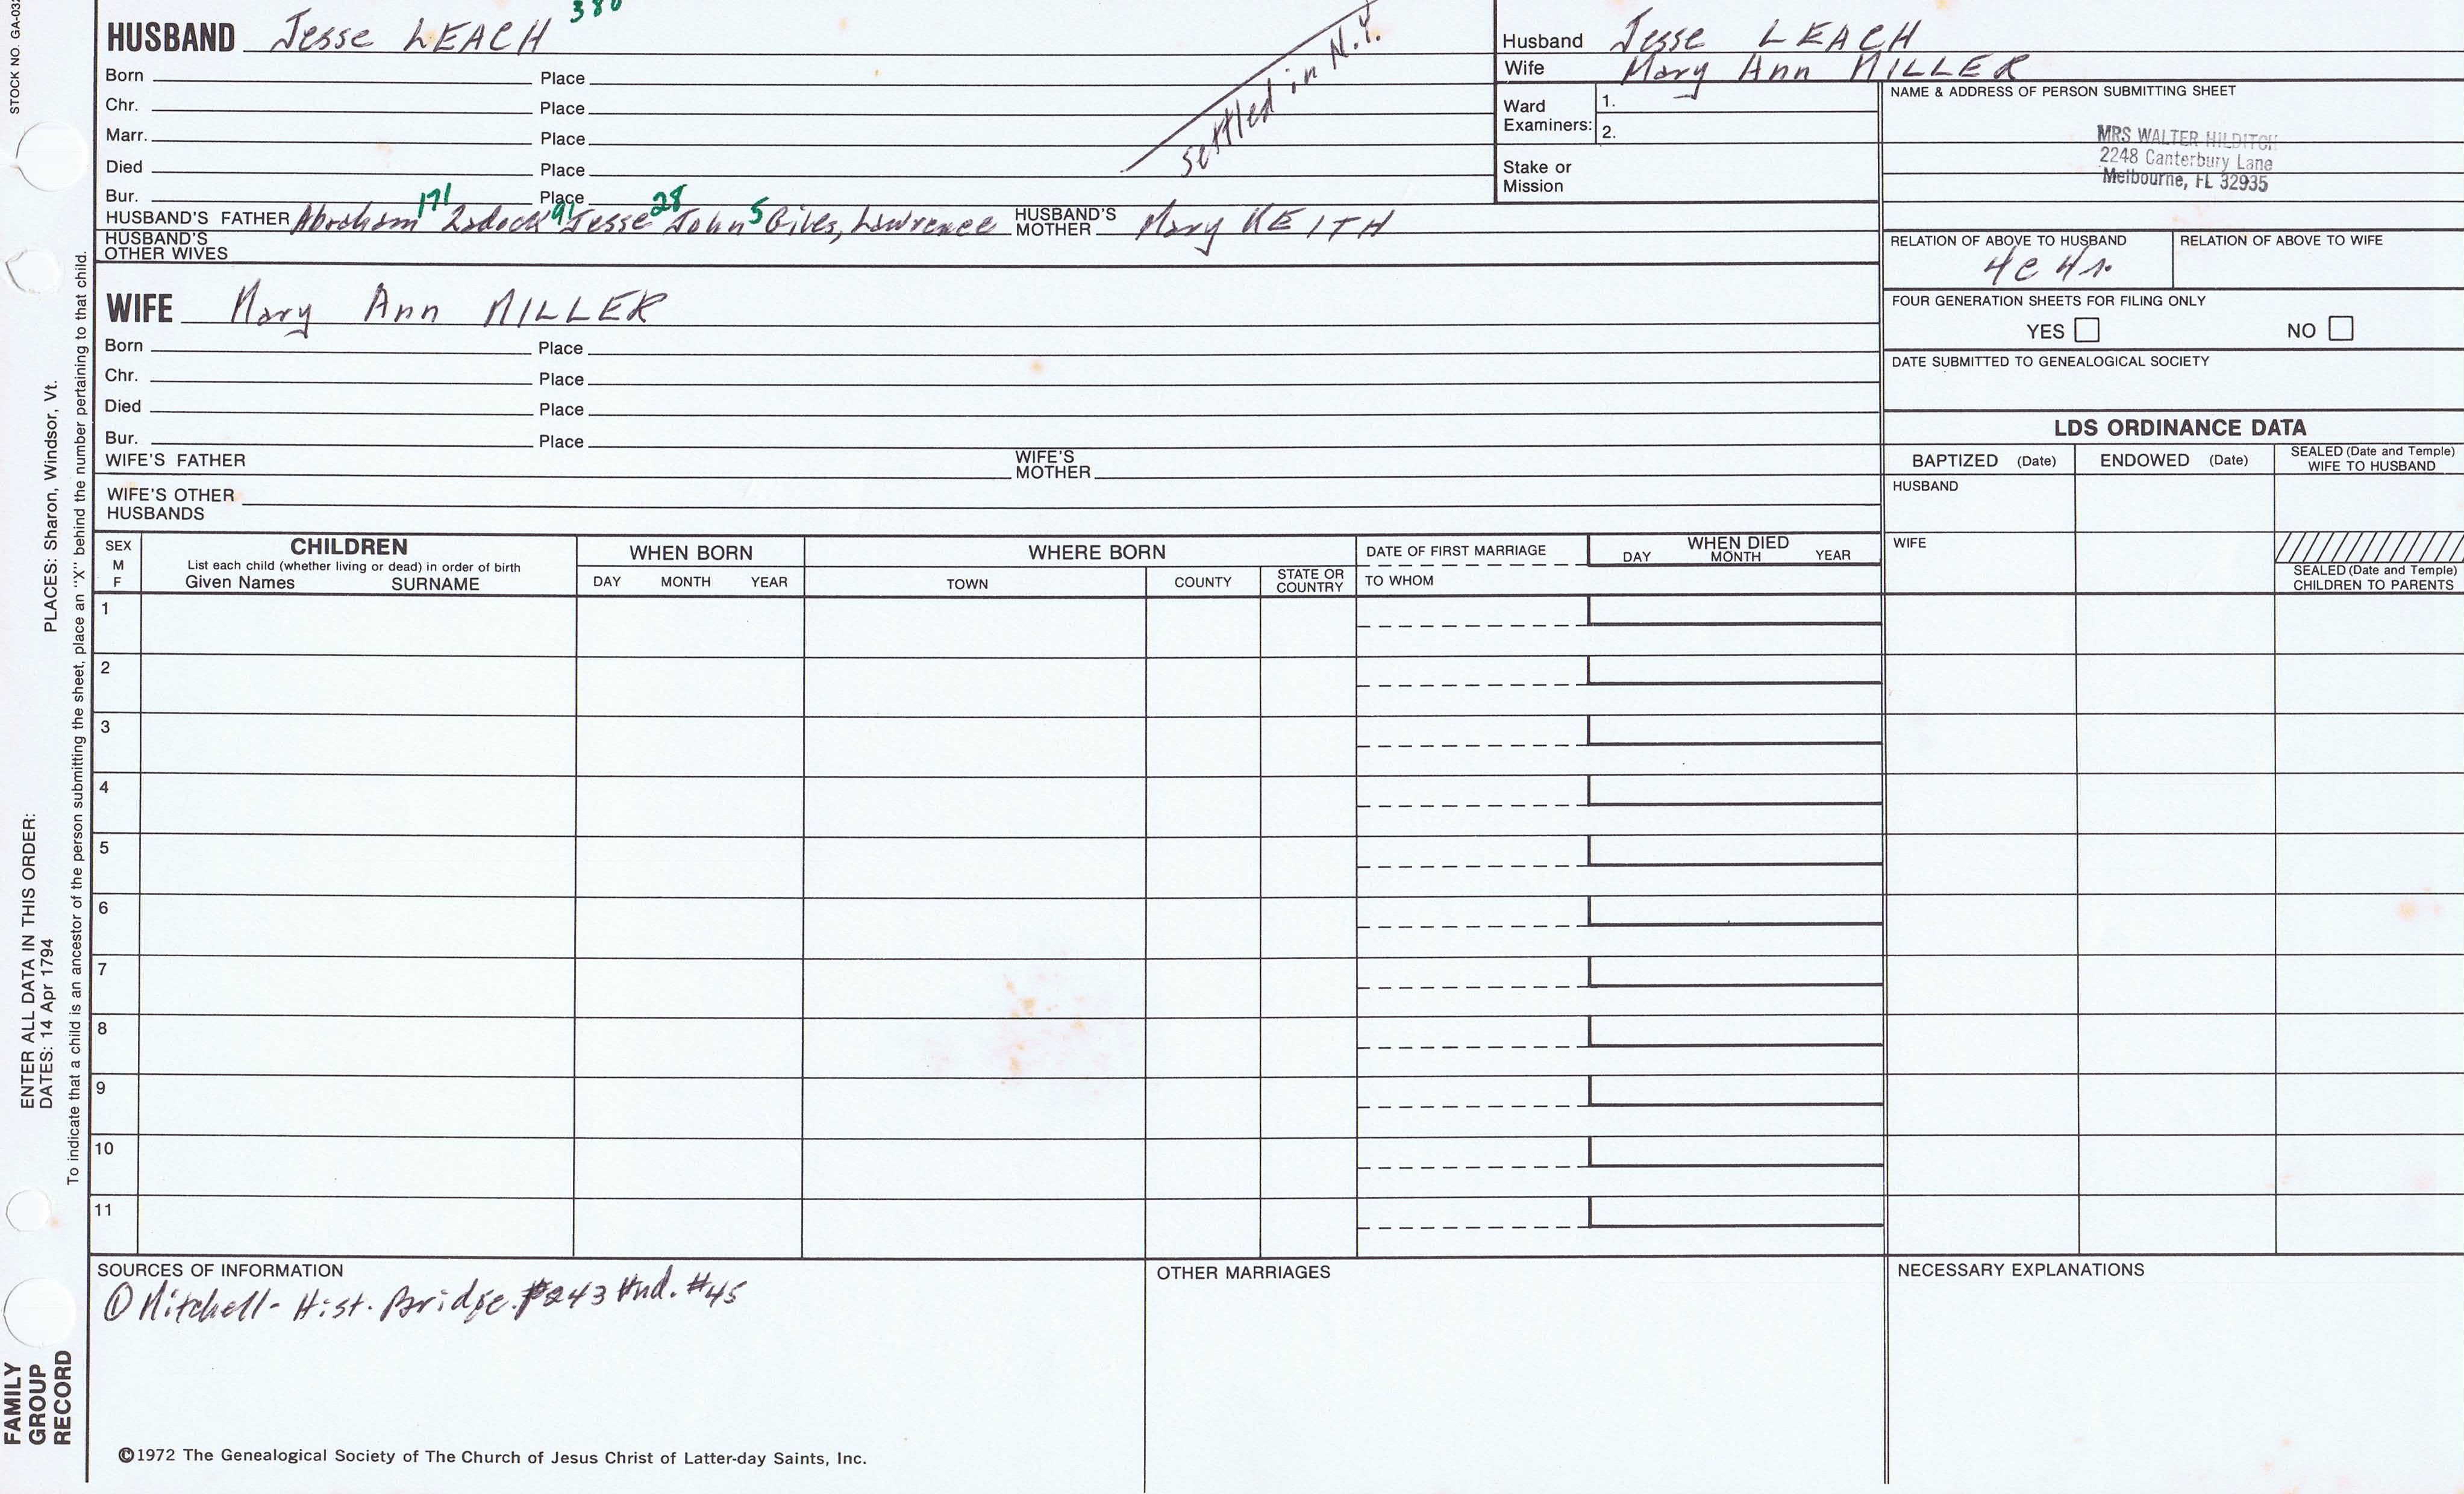 STOCK NO. GA-03
380
HUSBAND Jesse LEACH
Born Place
Chr. Place
Marr. Place
Died Place
Bur. Place
settled in N.Y.
171 91 28 5
HUSBAND'S FATHER Abraham Zadock Jesse John Giles, Lawrence HUSBAND'S MOTHER Mary KEITH
HUSBAND'S OTHER WIVES
WIFE Mary Ann MILLER
Born Place
Chr. Place
Died Place
Bur. Place
WIFE'S FATHER WIFE'S MOTHER
WIFE'S OTHER HUSBANDS
Husband Jesse LEACH
Wife Mary Ann MILLER
Ward Examiners: 1.
2.
Stake or Mission
NAME & ADDRESS OF PERSON SUBMITTING SHEET
MRS WALTER HILDITCH
2248 Canterbury Lane
Melbourne, FL 32935
RELATION OF ABOVE TO HUSBAND RELATION OF ABOVE TO WIFE
4c 4r.
FOUR GENERATION SHEETS FOR FILING ONLY
YES NO
DATE SUBMITTED TO GENEALOGICAL SOCIETY
LDS ORDINANCE DATA
BAPTIZED (Date) ENDOWED (Date) SEALED (Date and Temple) WIFE TO HUSBAND
HUSBAND
WIFE
SEALED (Date and Temple) CHILDREN TO PARENTS
SEX M F
CHILDREN
List each child (whether living or dead) in order of birth
Given Names SURNAME
WHEN BORN
DAY MONTH YEAR
WHERE BORN
TOWN COUNTY STATE OR COUNTRY
DATE OF FIRST MARRIAGE
TO WHOM
WHEN DIED
DAY MONTH YEAR
1
2
3
4
5
6
7
8
9
10
11
SOURCES OF INFORMATION
① Mitchell - Hist. Bridge. P243 #45
OTHER MARRIAGES
NECESSARY EXPLANATIONS
©1972 The Genealogical Society of The Church of Jesus Christ of Latter-day Saints, Inc.
FAMILY GROUP RECORD
ENTER ALL DATA IN THIS ORDER:
DATES: 14 Apr 1794 PLACES: Sharon, Windsor, Vt.
To indicate that a child is an ancestor of the person submitting the sheet, place an "X" behind the number pertaining to that child.